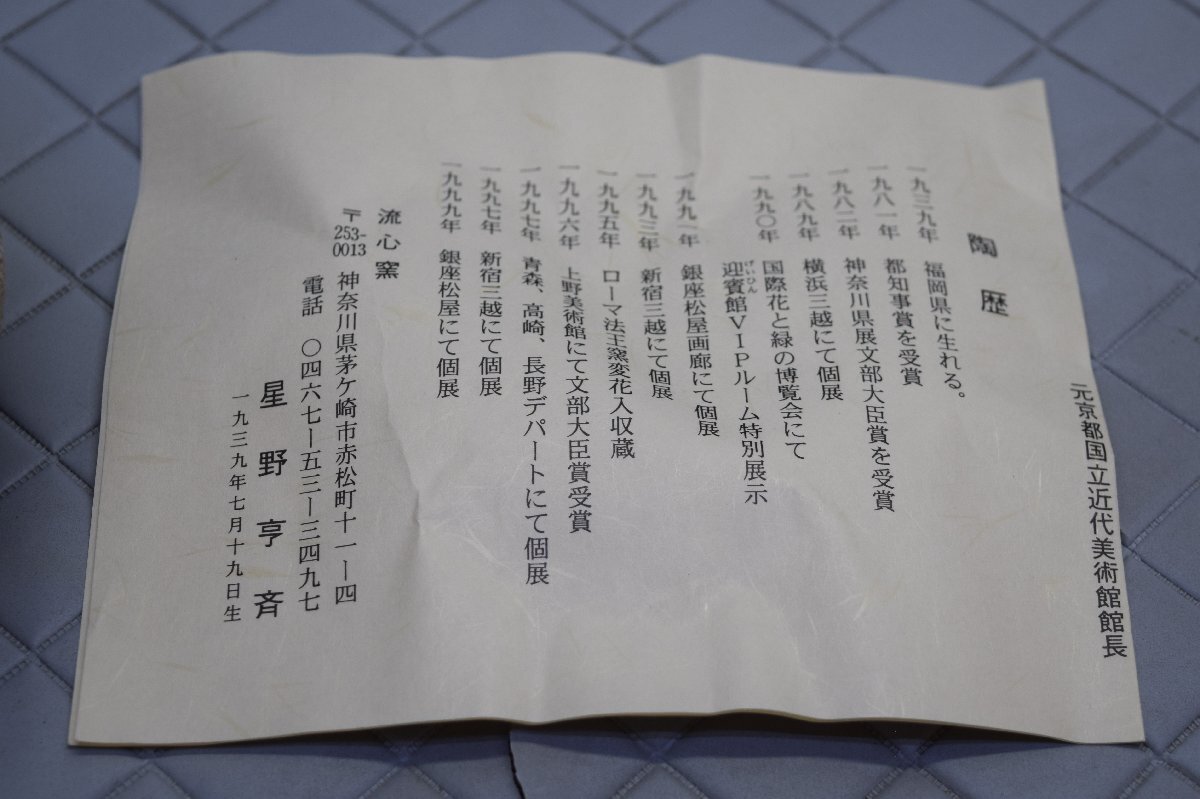 元京都国立近代美術館館長
陶歴
一九三九年 福岡県に生れる。
一九八一年 都知事賞を受賞
一九八二年 神奈川県展文部大臣賞を受賞
一九八九年 横浜三越にて個展
一九九〇年 国際花と緑の博覧会にて
迎賓館VIPルーム特別展示
げいひん
一九九一年 銀座松屋画廊にて個展
一九九三年 新宿三越にて個展
一九九五年 ローマ法王窯変花入収蔵
一九九六年 上野美術館にて文部大臣賞受賞
一九九七年 青森、高崎、長野デパートにて個展
一九九七年 新宿三越にて個展
一九九九年 銀座松屋にて個展
流心窯
〒253-0013 神奈川県茅ケ崎市赤松町十一ー四
電話 〇四六七ー五三ー三四九七
星野亨斉
一九三九年七月十九日生